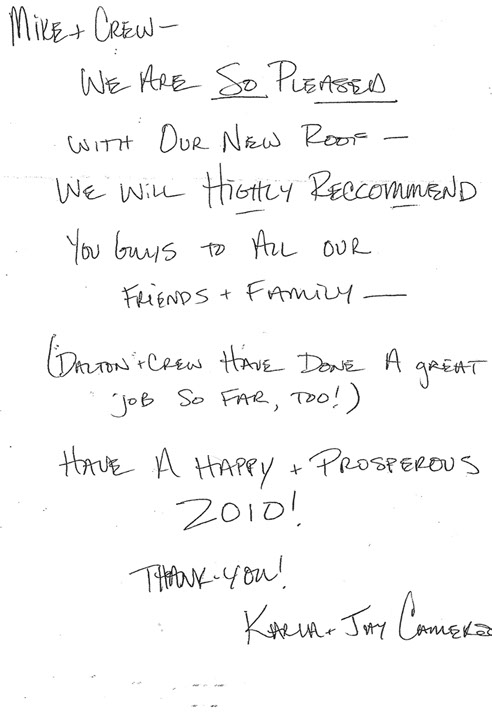 Mike + Crew —
We Are So Pleased
with Our New Roof —
We Will Highly Reccommend
You Guys to All our
Friends + Family —
(Dalton + Crew Have Done A great
job So Far, Too!)
Have A Happy + Prosperous
2010!
Thank-you!
Karla + Jay